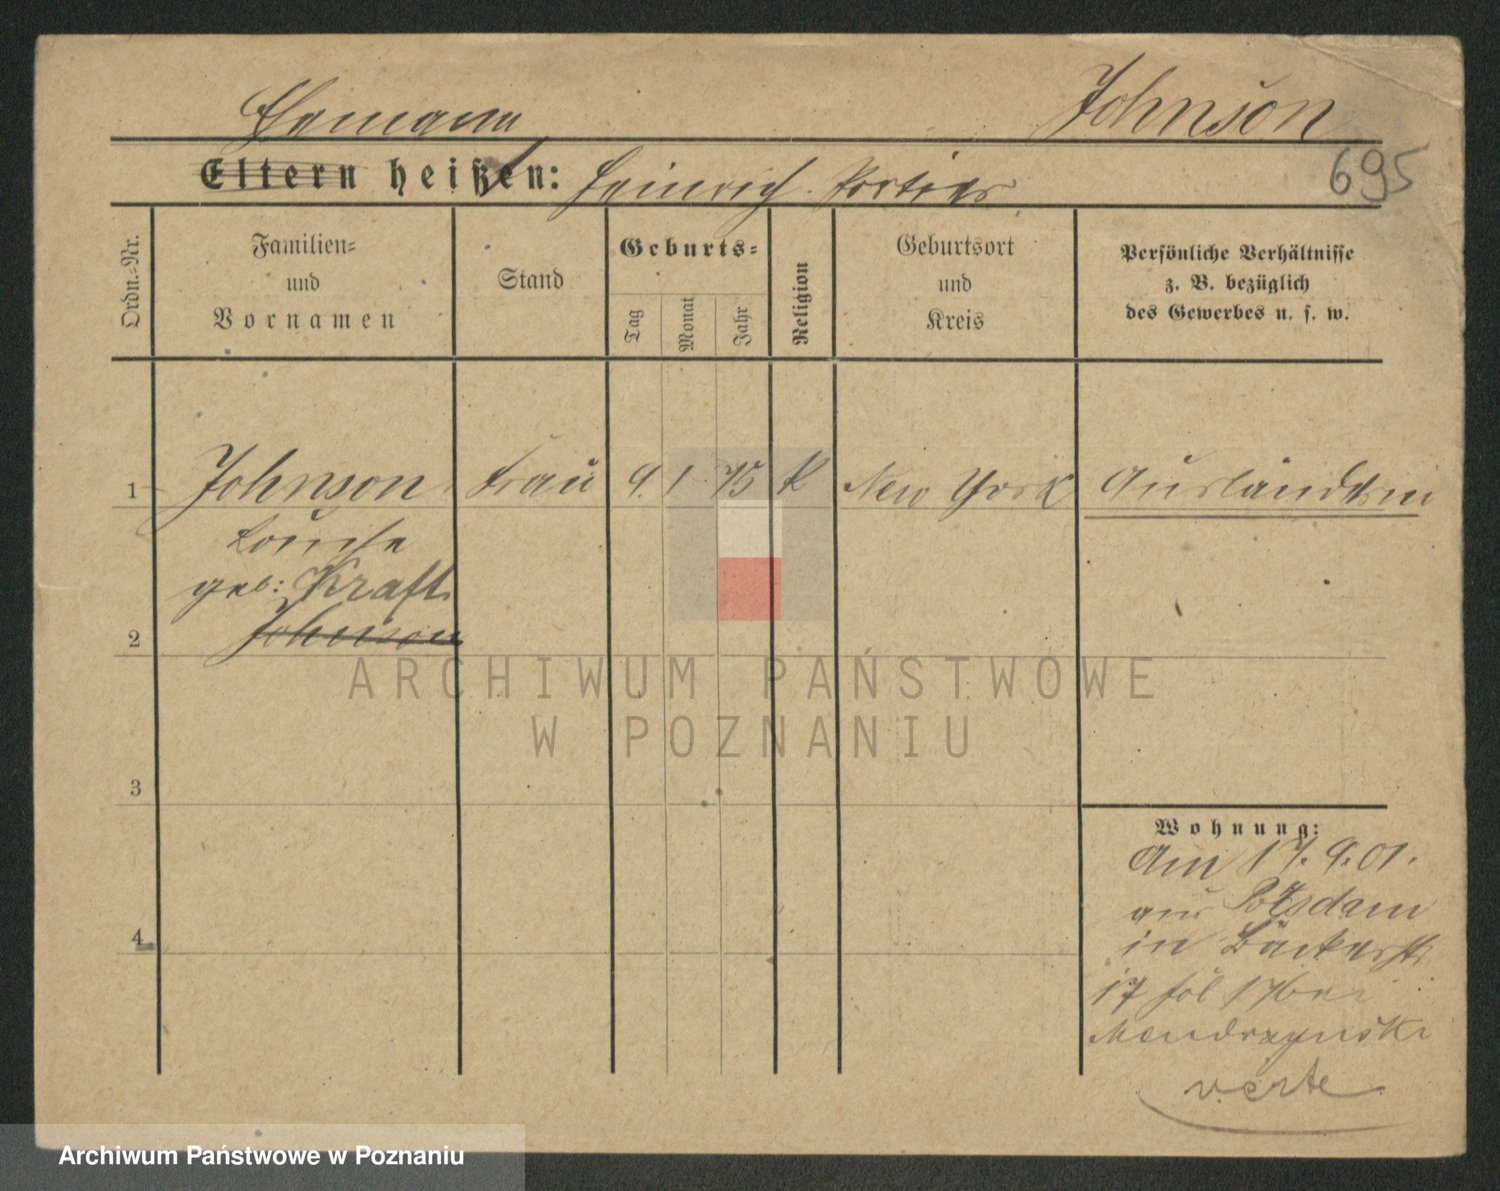 Ehemann Johnson
Eltern heißen: Heinrich Portier
695
Ordn.-Nr.
Familien-
und
Vornamen
Stand
Geburts-
Tag
Monat
Jahr
Religion
Geburtsort
und
Kreis
Persönliche Verhältnisse
z. B. bezüglich
des Gewerbes u. s. w.
1 Johnson Frau 9. 1. 75 K New York Ausländerin
Louise
geb: Kraft
2 Johnson
ARCHIWUM PAŃSTWOWE
W POZNANIU
3
Wohnung:
Am 17. 9. 01.
aus Potsdam
in Bäckerstr
4
17 bei
verte
Archiwum Państwowe w Poznaniu